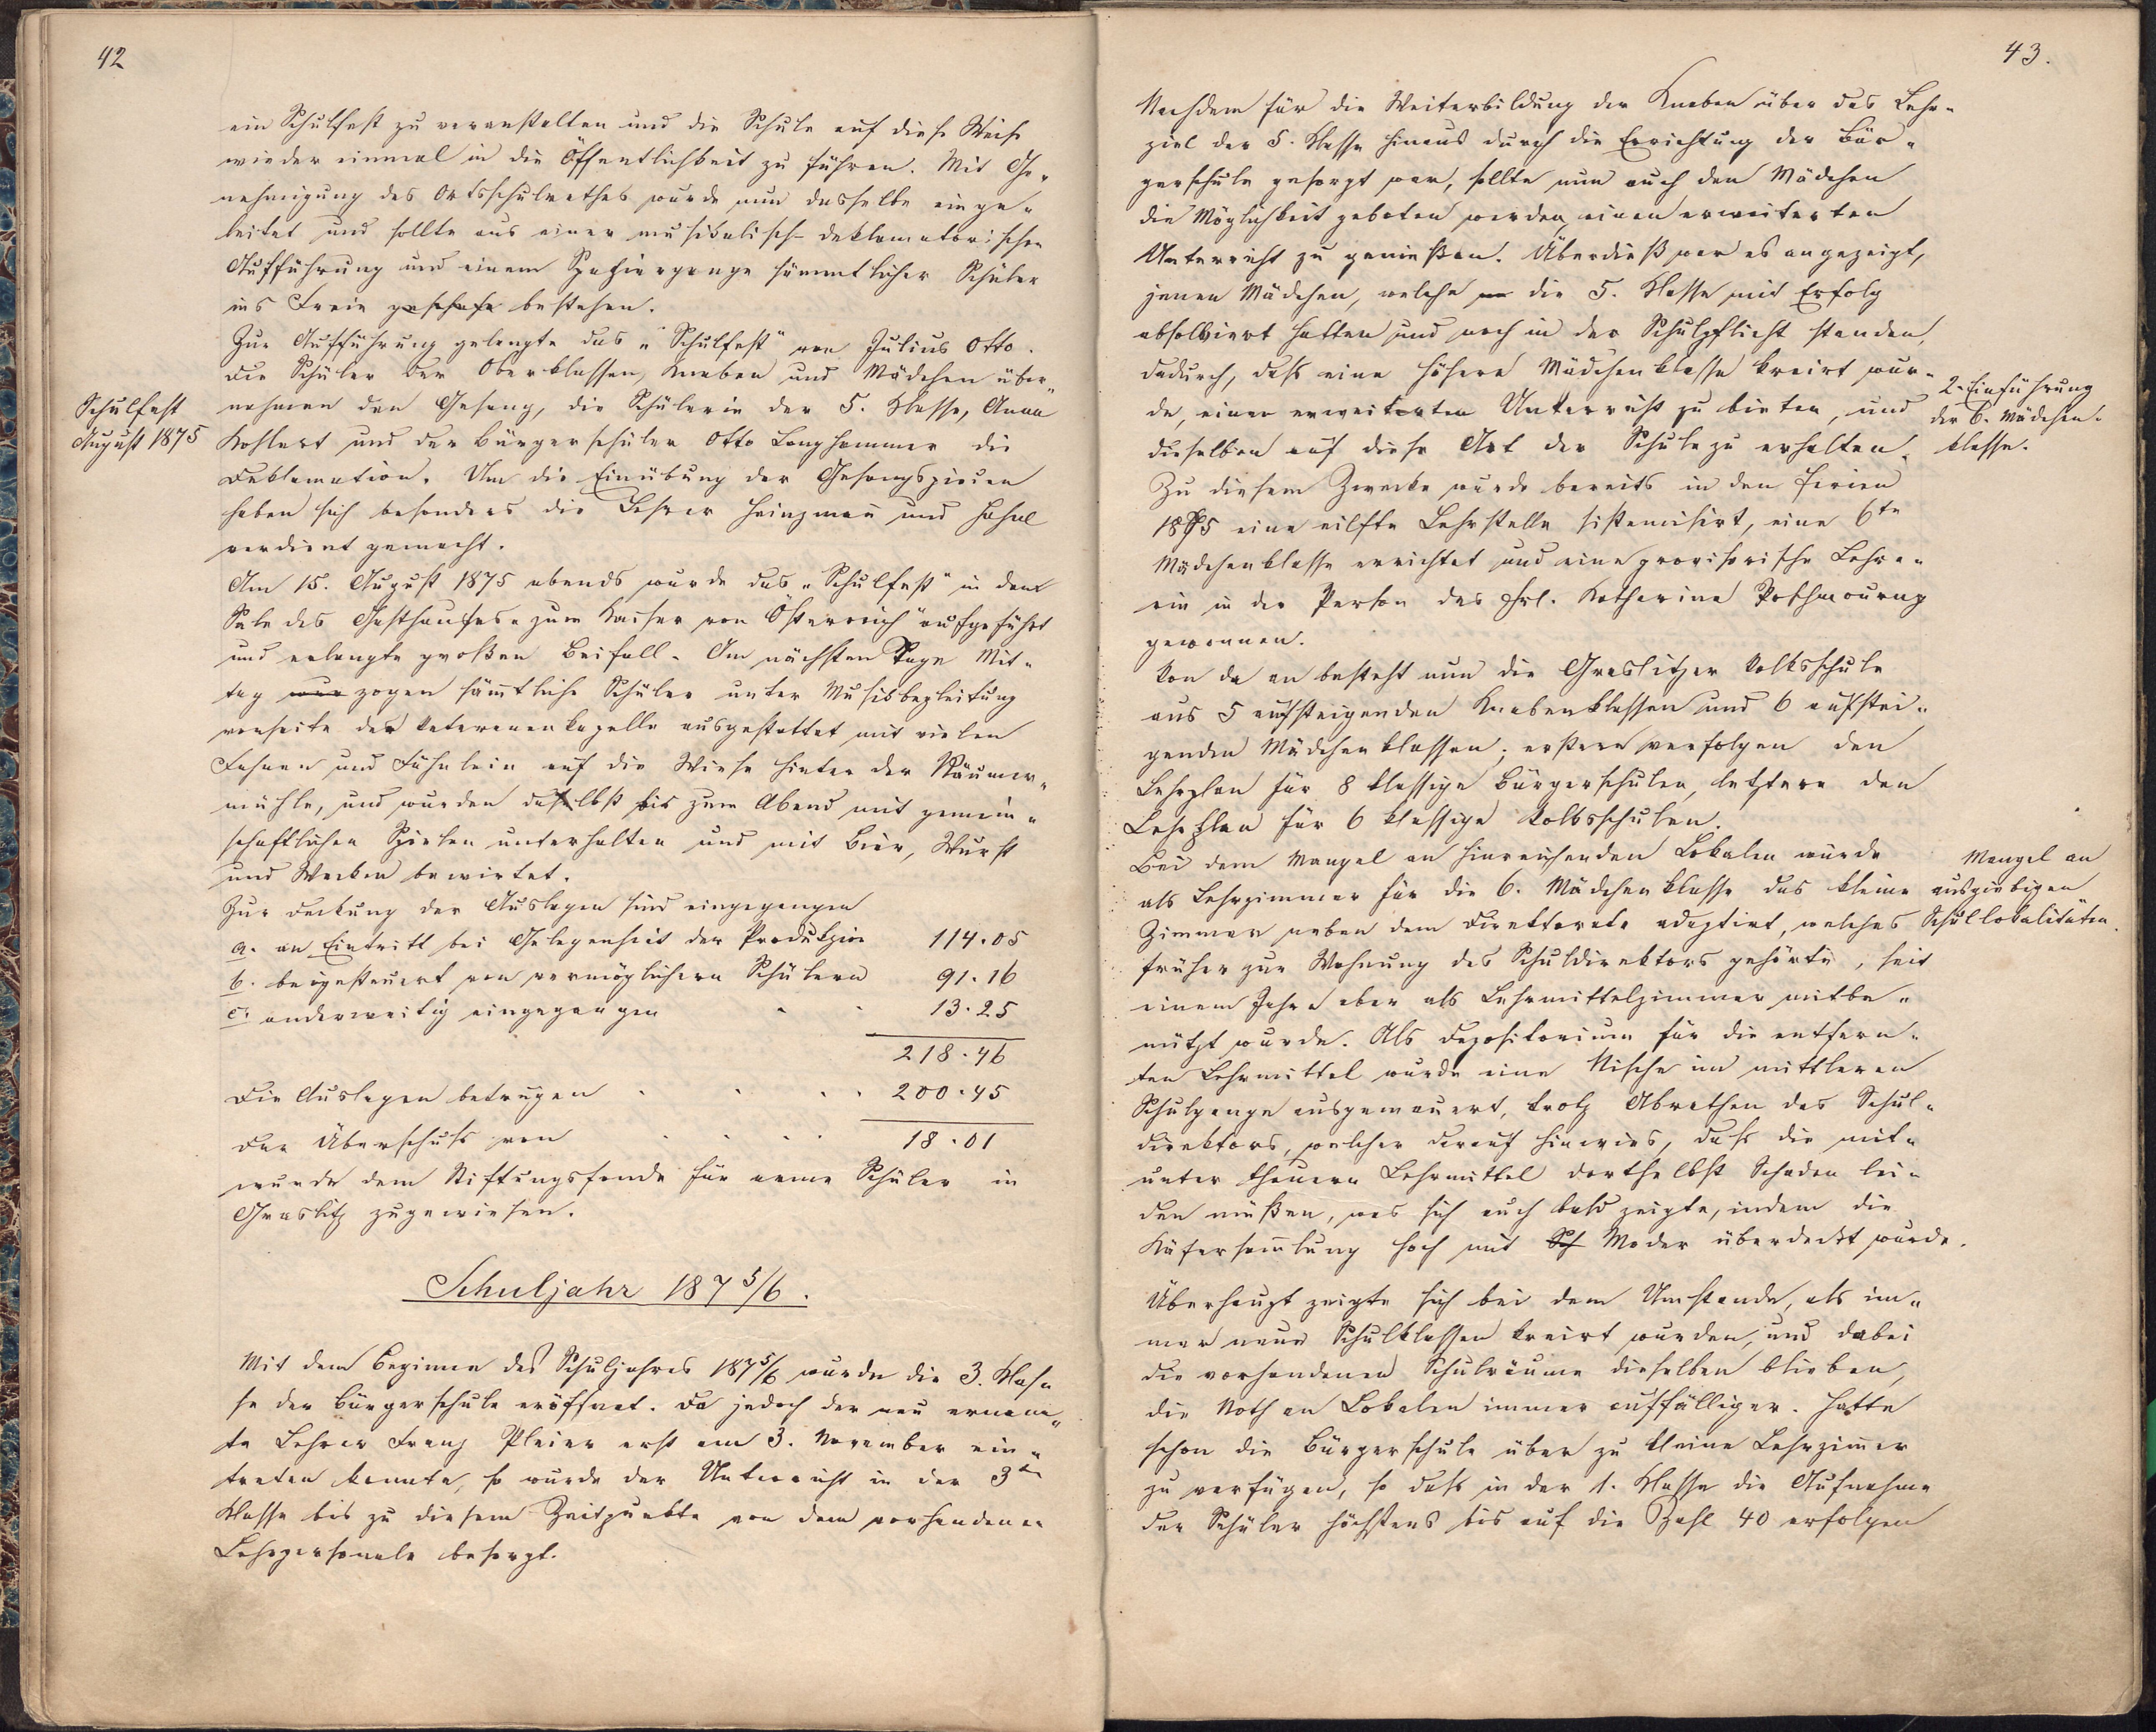 42
ein Schulfest zu veranstalten und die Schule auf diese Weise
wieder einmal in die Öffentlichkeit zu führen. Mit Ge-
nehmigung des Ortsschulrathes wurde nun dasselbe einge-
leitet und sollte aus einer musikalisch-deklamatorischen
Aufführung und einem Spaziergange sämmtlicher Schüler
ins Freie bestehen.
Zur Aufführung gelangte das „Schulfest" von Julius Otto.
Die Schüler der Oberklassen, Knaben und Mädchen über-
Schulfest
August 1875
nahmen den Gesang, die Schülerin der 5. Klasse, Anna
Kohlert und der Bürgerschüler Otto Langhammer die
Deklamation. Um die Einübung der Gesangspiecen
haben sich besonders die Lehrer Heinzmañ und Hahnl
verdient gemacht.
Am 15. August 1875 abends wurde das „Schulfest" in dem
Sale des Gasthauses „zum Kaiser von Österreich" aufgeführt
und erlangte großen Beifall. Am nächsten Tage Mit-
tag wur zogen säm̄tliche Schüler unter Musikbegleitung
vonseite der Veteranenkapelle ausgestattet mit vielen
Fahnen und Fähnlein auf die Wiese hinter der Räumer-
mühle, und wurden daselbst bis zum Abend mit gemein-
schaftlichen Spielen unterhalten und mit Bier, Wurst
und Wecken bewirtet.
Zur Deckung der Auslagen sind eingegangen
a. an Eintritt bei Gelegenheit der Produkzion 114.05
b. beigesteuert von vermöglichern Schülern 91.16
c. anderweitig eingegangen 13.25
218.46
Die Auslagen betrugen 200.45
Der Überschuß von 18.01
wurde dem Stiftungsfonde für arme Schüler in
Graslitz zugewiesen.
Schuljahr 1875/6.
Mit dem Beginne des Schuljahres 1875/6 wurde die 3. Klas-
se der Bürgerschule eröffnet. Da jedoch der neu ernann-
te Lehrer Franz Pleier erst am 3. November ein-
treten konnte, so wurde der Unterricht in der 3ten
Klasse bis zu diesem Zeitpunkte von dem vorhandenen
Lehrpersonale besorgt.
43.
Nachdem für die Weiterbildung der Knaben über das Lehr-
ziel der 5. Klasse hinaus durch die Errichtung der Bür-
gerschule gesorgt war, sollte nun auch den Mädchen
die Möglichkeit geboten werden, einen erweiterten
Unterricht zu genießen. Überdieß war es angezeigt,
jenen Mädchen, welche die 5. Klasse mit Erfolg
absolviert hatten und noch in der Schulpflicht standen,
dadurch, daß eine höhere Mädchenklasse kreirt wur-
de, einen erweiterten Unterricht zu bieten, und
dieselben auf diese Art der Schule zu erhalten.
2. Einführung
der 6. Mädchen-
klasse.
Zu diesem Zwecke wurde bereits in den Ferien
1875 eine eilfte Lehrstelle sistemisirt, eine 6te
Mädchenklasse errichtet und eine provisorische Lehre-
rin in der Person des Frl. Katharina Poschmourny
gewonnen.
Von da an besteht nun die Graslitzer Volksschule
aus 5 aufsteigenden Knabenklassen und 6 aufstei-
genden Mädchenklassen; erstere verfolgen den
Lehrplan für 8 klassige Bürgerschulen, letztere den
Lehrplan für 6 klassige Volksschulen.
Bei dem Mangel an hinreichenden Lokalen wurde
als Lehrzimmer für die 6. Mädchenklasse das kleine
Zimmer neben dem Direktorate adaptirt, welches
Mangel an
ausgiebigen
Schullokalitäten.
früher zur Wohnung des Schuldirektors gehörte, seit
einem Jahre aber als Lehrmittelzimmer mitbe-
nützt wurde. Als Depositorium für die entfern-
ten Lehrmittel wurde eine Nische im mittleren
Schulgange ausgemauert, trotz Abrathen des Schul-
direktors, welcher darauf hinwies, daß die mit-
unter theuern Lehrmittel dorthselbst Schaden lei-
den müßen, was sich auch bald zeigte, indem die
Käfersam̄lung hoch mit Sch Moder überdeckt wurde.
Überhaupt zeigte sich bei dem Umstande, als im-
mer neue Schulklassen kreirt wurden, und dabei
die vorhandenen Schulräume dieselben blieben,
die Noth an Lokalen immer auffälliger. Hatte
schon die Bürgerschule über zu kleine Lehrzim̄er
zu verfügen, so daß in der 1. Klasse die Aufnahme
der Schüler höchstens bis auf die Zahl 40 erfolgen